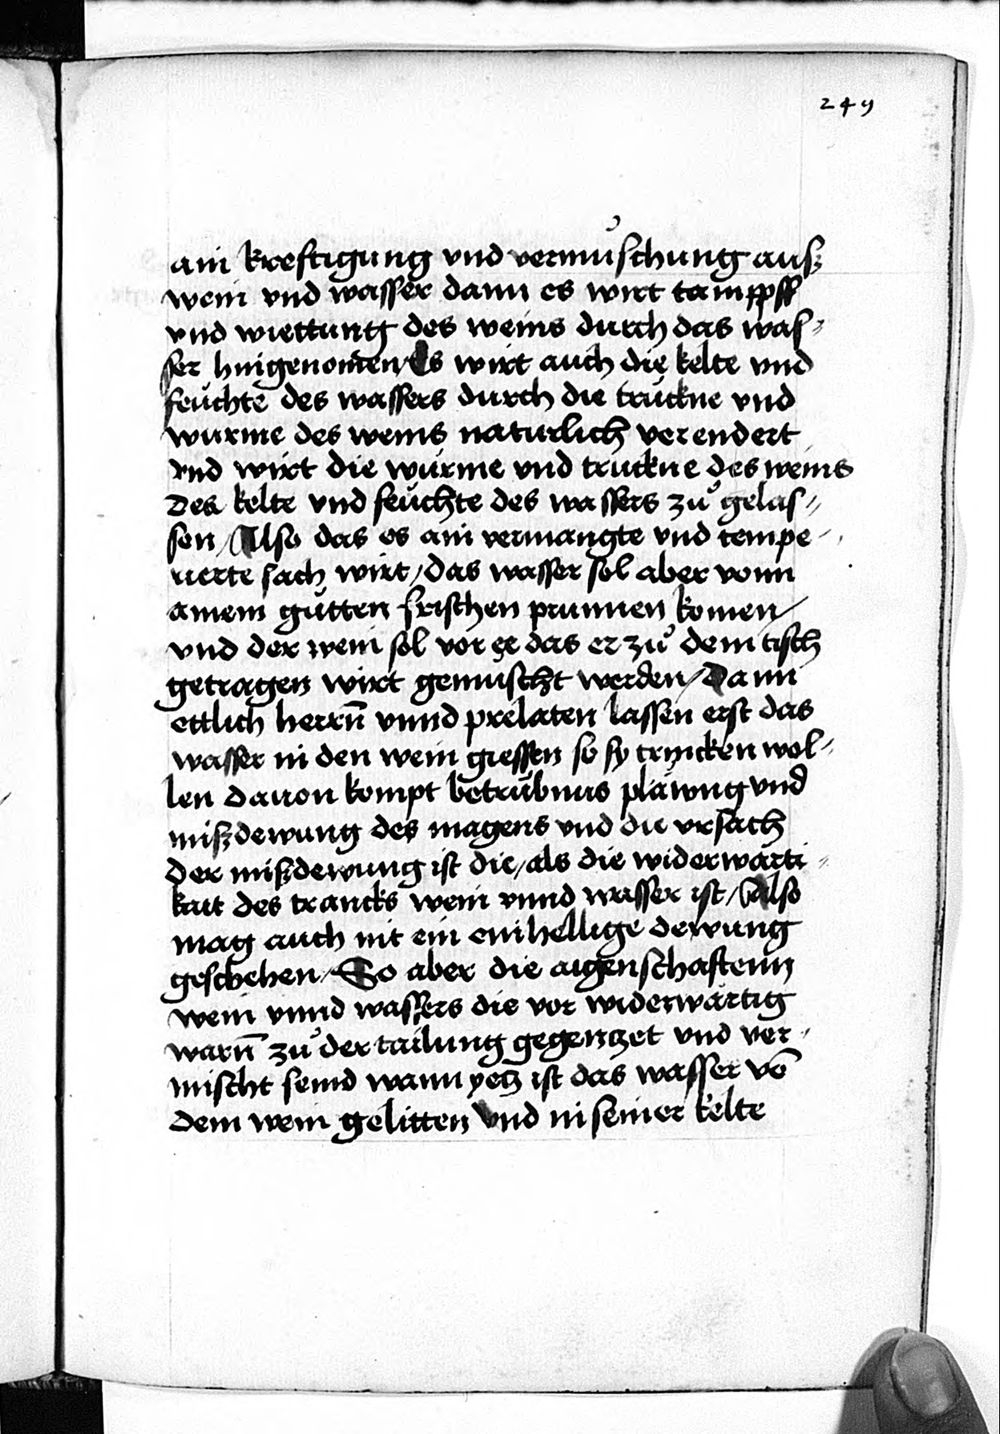 249
ain kreftigung vnd vermuͤschung ausz
wein vnd wasser dann es wirt tamppff
vnd wiettung des weins durch das was⸗
ser hingenomen / Es wirt auch die kelte vnd
feüchte des wassers durch die truckne vnd
wurme des weins naturlich verendert
vnd wirt die würme vnd truckne des weins
der kelte vnd feüchte des wassers zuͦ gelas⸗
sen / Also das es ain vermangte vnd tempe⸗
rierte sach wirt / das wasser sol aber vonn
ainem gütten frischen prunnen komen /
vnd der wein sol vor ee das er zuͦ dem tisch
getragen wirt gemischt werden / Dann
ettlich herrn̄ vnnd prelaten lassen erst das
wasser in den wein giessen so sy trincken wol⸗
len dauon kompt betrübnus pläwng vnd
miszdewung des magens vnd die vrsach
der miszdewung ist die / als die widerwärti⸗
kait des trancks wein vnnd wasser ist / Also
mag auch nit ein einhellige dewung
geschehen / So aber die aigenschaftenn
wein vnnd wassers die vor widerwärtig
warn̄ zuͦ der tailung gegenczet vnd ver⸗
mischt seind wann yetz ist das wasser vō
dem wein gelitten vnd in seiner kelte